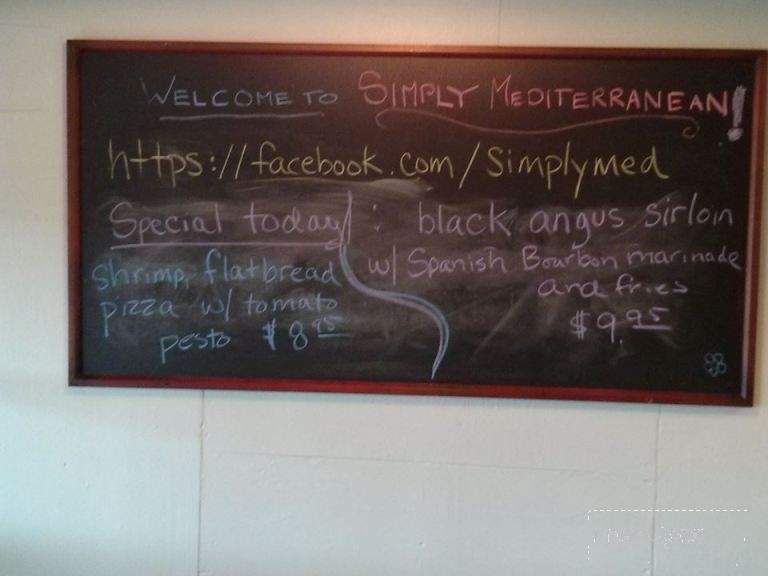 WELCOME TO SIMPLY MEDITERRANEAN!
https://facebook.com/Simplymed
Special today: black angus sirloin
w/ Spanish Bourbon marinade
and fries
$9.95
shrimp flatbread
pizza w/ tomato
pesto $8.95